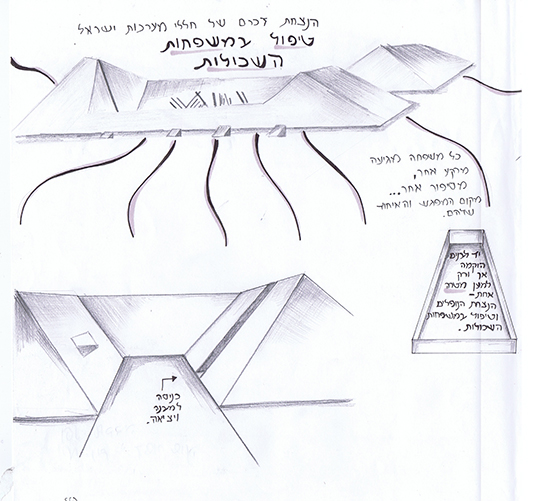 הנצחת זכרם של חללי מערכות ישראל
טיפול במשפחות
השכולות
כל משפחה מגיעה
מרקע אחר,
מסיפור אחר...
מקום המפגש והאיחוד
שלהם.
יד לבנים
הוקמה
אך ורק
למען מטרה
אחת -
הנצחת הנופלים
וטיפול במשפחות
השכולות.
כניסה
למבנה
ויציאה.